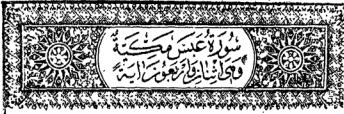 سُورَةُ عَبَسَ مَكِّيَّةٌ
وَهِيَ اثْنَتَانِ وَأَرْبَعُونَ آيَةً